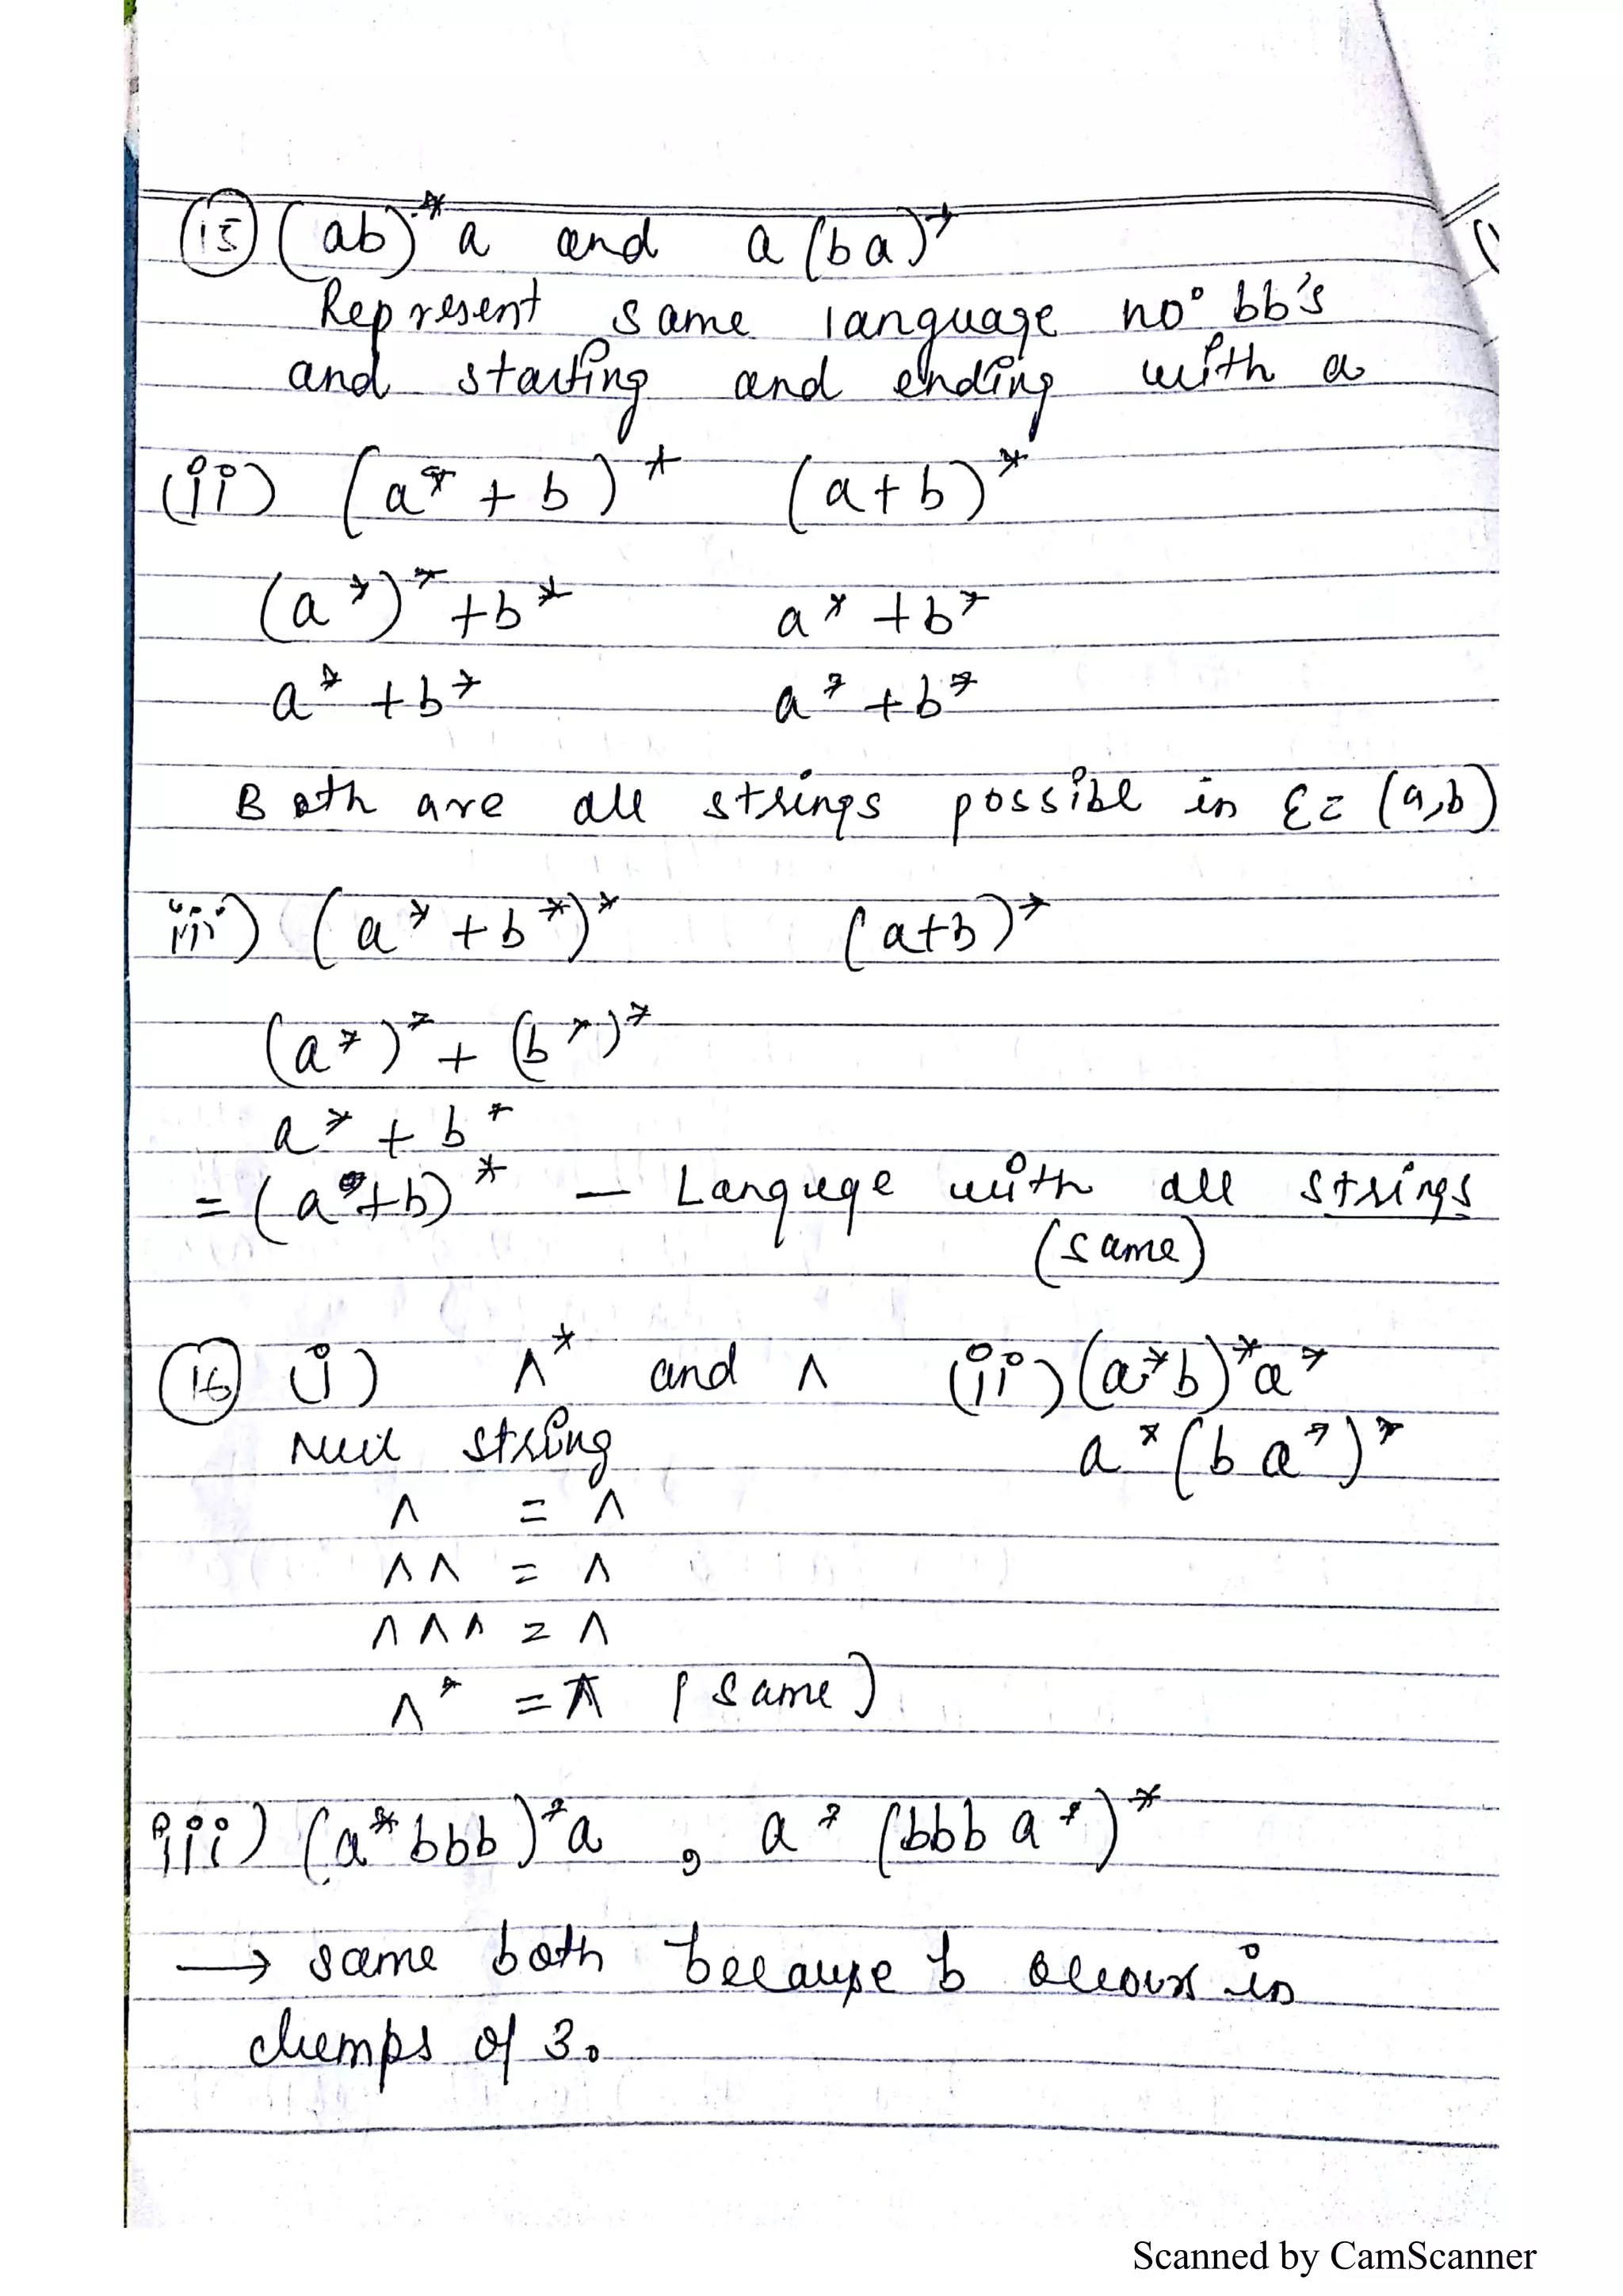 (15) (ab)* a and a (ba)*
Represent same language no bb's
and starting and ending with a
(ii) (a* + b)* (a+b)*
(a*)* + b* a* + b*
a* + b* a* + b*
Both are all strings possible in Ɛ = (a,b)
iii) (a* + b*)* (a+b)*
(a*)* + (b*)*
a* + b*
= (a+b)* — Languge with all strings
(same)
(16) (i) ∧* and ∧ (ii) (a*b)*a*
a*(ba*)*
Null string
∧ = ∧
∧∧ = ∧
∧∧∧ = ∧
∧* = ∧ (same)
iii) (a*bbb)*a , a*(bbba*)*
→ same both because b occurs in
clumps of 3.
Scanned by CamScanner